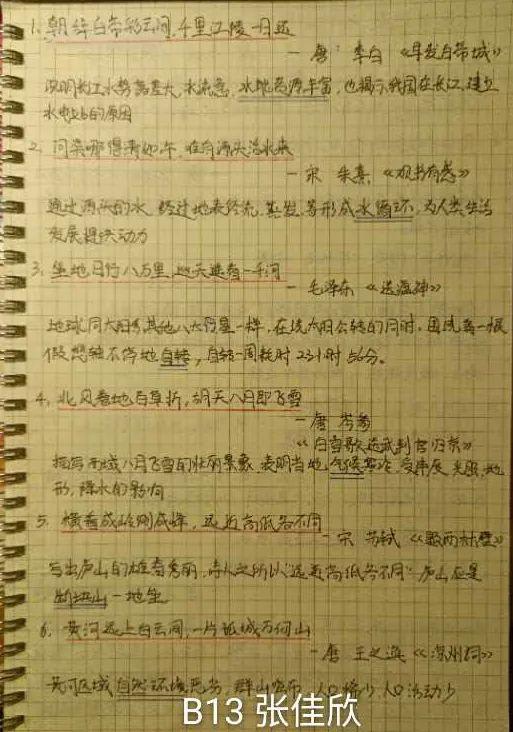 1. 朝辞白帝彩云间,千里江陵一日还
— 唐·李白《早发白帝城》
说明长江水势落差大,水流急,水地资源丰富,也揭示我国在长江建立
水电站的原因
2. 问渠哪得清如许,唯有源头活水来
— 宋 朱熹《观书有感》
通过源头的水 经过地表径流,蒸发,等形成水循环,为人类生活
发展提供动力
3. 坐地日行八万里,巡天遥看一千河
— 毛泽东《送瘟神》
地球同太阳系其他八大行星一样,在绕太阳公转的同时,围绕着一根
假想轴不停地自转,自转一周耗时23小时56分。
4. 北风卷地百草折,胡天八月即飞雪
— 唐 岑参
《白雪歌送武判官归京》
描写西域八月飞雪的壮丽景象,表明当地气候寒冷,受纬度,光照,地
形,降水的影响
5. 横看成岭侧成峰,远近高低各不同
— 宋 苏轼《题西林壁》
写出庐山的雄奇秀丽,诗人之所以"远近高低各不同"庐山应是
断块山一地垒
6. 黄河远上白云间,一片孤城万仞山
— 唐 王之涣《凉州词》
黄河区域自然环境恶劣,群山密布,人口稀少 人口活动少
B13 张佳欣